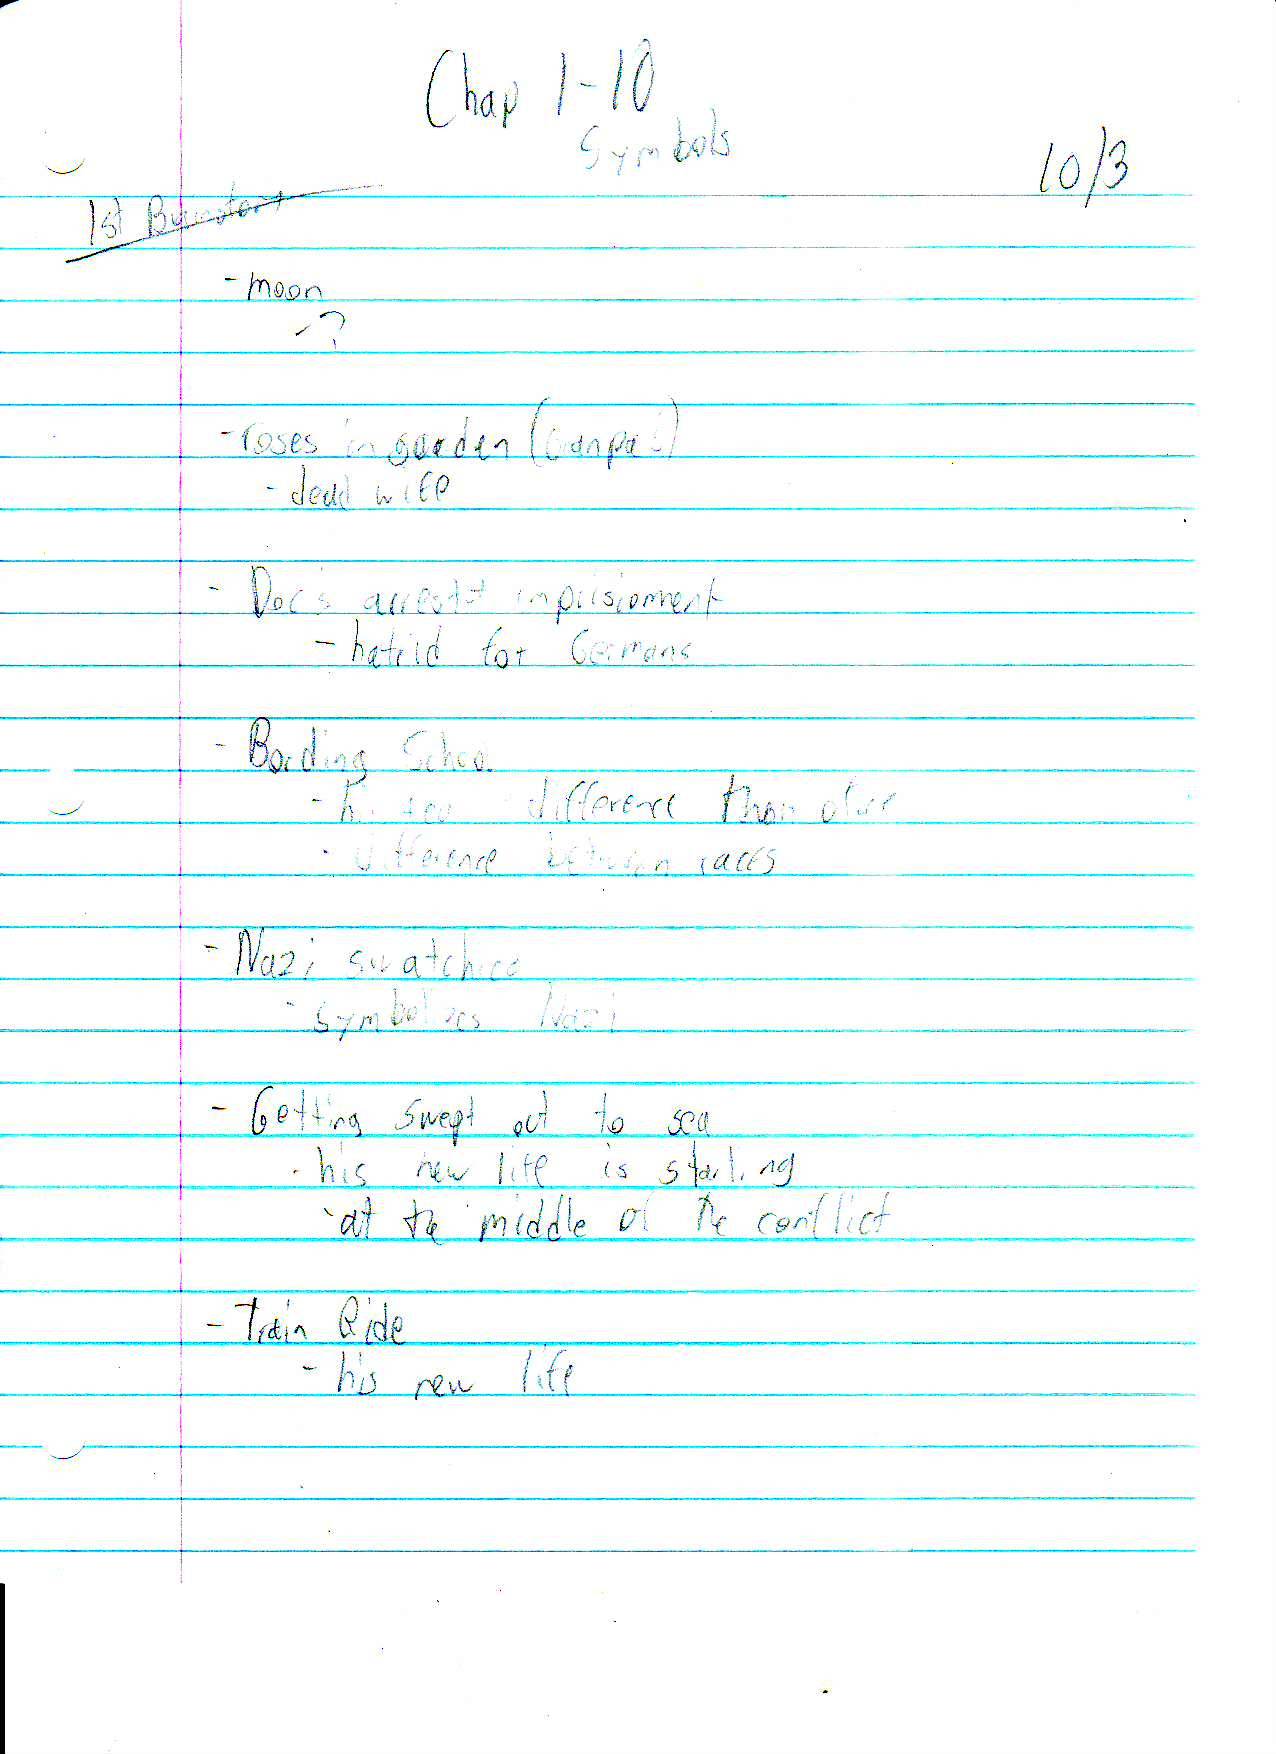 Chap 1-10
Symbols
10/3
1st
- moon
- ?
- roses in garden (Granpa's)
- dead wife
- Doc's arrest + imprisionment
- hatrid for Germans
- Bording School
- difference than
- difference between races
- Nazi
- symbolizes Nazi
- Getting swept out to sea
- his new life is starting
- at the middle of the conflict
- Train Ride
- his new life